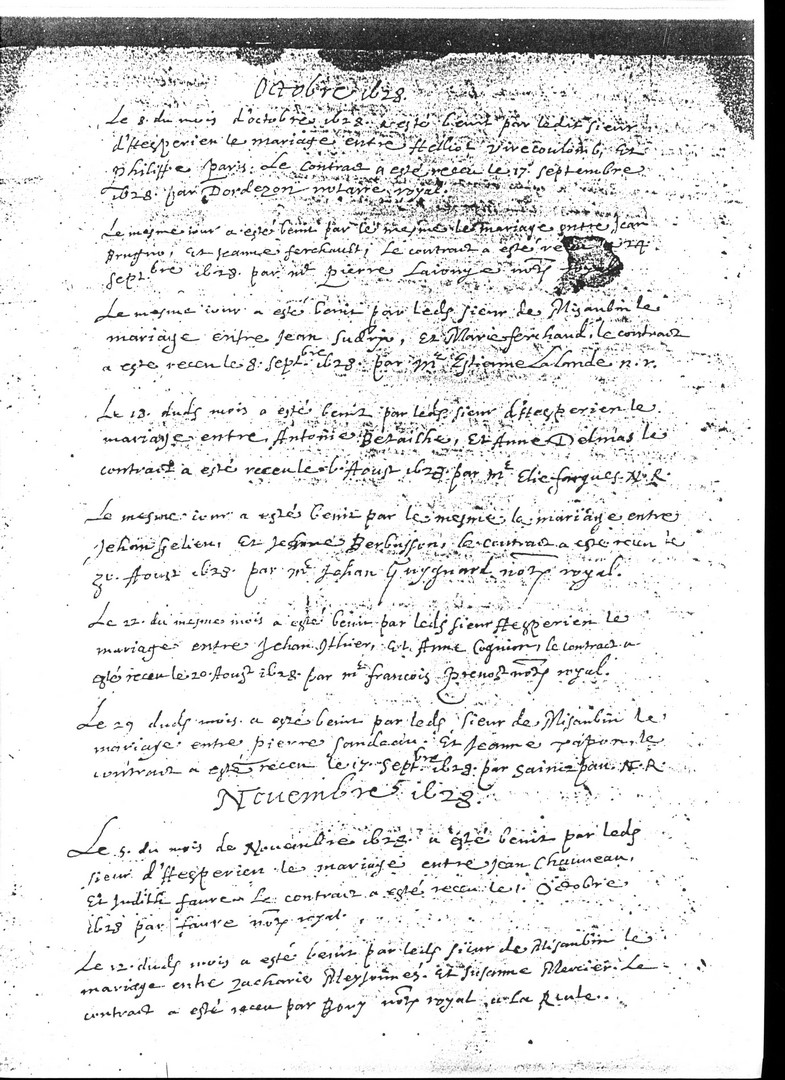 Octobre 1628
Le 8. du mois d'octobre 1628. a esté benit par ledit sieur
d'Hesperien le mariage entre Helliot Virecoulomb, Et
Philippe Paris. Le contract a esté receu le 17. septembre
1628. par Dordezon notaire royal.
Le mesme iour a esté benit par le mesme le mariage entre Jean
Brugno, Et Jeanne ferchaust, Le contract a esté 24.
septbre 1628. par me Pierre notre
Le mesme iour a esté benit par leds sieur de Misaubin le
mariage entre Jean Et Marie ferchaud, le contract
a este receu le 8. septbre 1628. par Me Estienne Lalonde n. r.
Le 18. duds mois a esté benit par leds sieur d'Hesperien le
mariage entre Antoine Betailhe, Et Anne Delmas le
contract a esté receu le 6. Aoust 1628. par me Elie fargues. N. R.
Le mesme iour a esté benit par le mesme le mariage entre
Jehan Gelieu, Et Jehanne le contract a esté receu le
Aoust 1628. par me Jehan Guygnard notre royal.
Le 22. du mesme mois a esté benit par leds sieur Hesperien le
mariage entre Jehan Ithier, Et Anne Cognion, le contract a
esté receu le 20. Aoust 1628. par me francois Prevost notre royal.
Le 29 duds mois. a esté benit par leds sieur de Misaubin le
mariage entre Pierre Sandeau. Et Jeanne Papon, le
contract a esté receu le 17. septbre 1628. par N. R.
Novembre 1628.
Le 5. du mois de Novembre 1628. a esté benit par leds
sieur d'Hesperien le mariage entre Jean Chauveau,
Et Judith faure. Le contract a esté receu le 1. Octobre
1628 par faure notre royal.
Le 12. duds mois a esté benit par leds sieur de Misaubin le
mariage entre Zacharie Et Susanne Mercier. Le
contract a esté receu par Bory notre royal a La Reule.